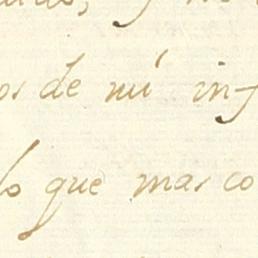 os de mi inf
lo que mas co